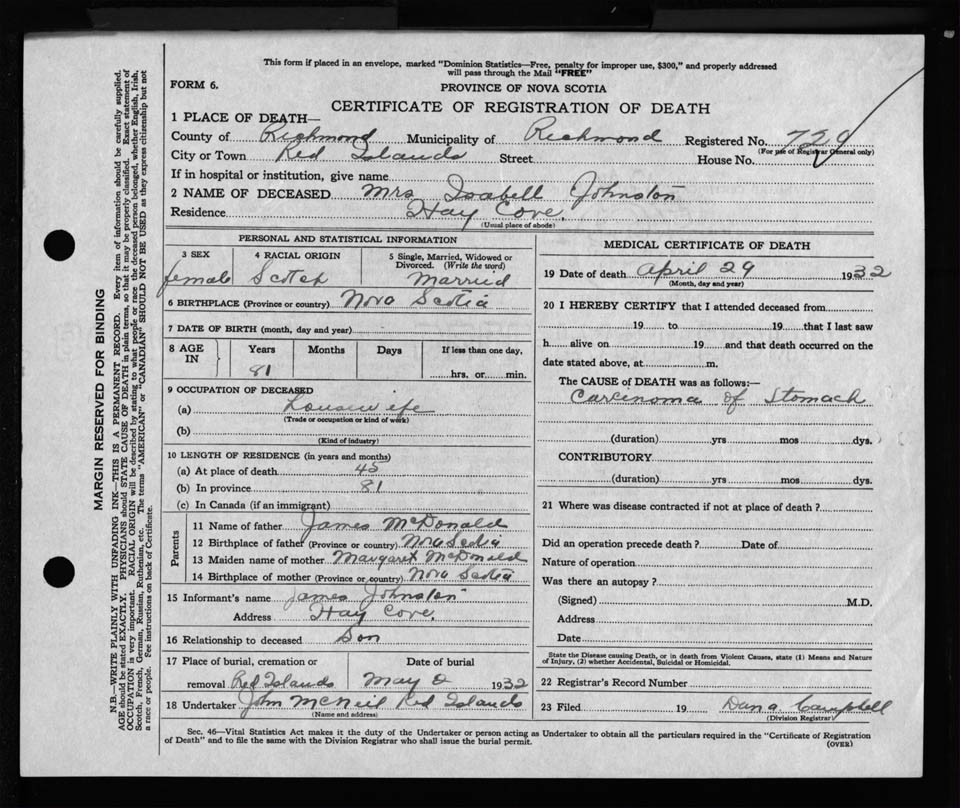 This form if placed in an envelope, marked "Dominion Statistics—Free, penalty for improper use, $300," and properly addressed
will pass through the Mail "FREE"
FORM 6.
PROVINCE OF NOVA SCOTIA
CERTIFICATE OF REGISTRATION OF DEATH
1 PLACE OF DEATH—
County of Richmond Municipality of Richmond Registered No. 729
(For use of Registrar General only)
City or Town Red Islands Street House No.
If in hospital or institution, give name
2 NAME OF DECEASED Mrs Isabell Johnston
Residence Hay Cove.
(Usual place of abode)
PERSONAL AND STATISTICAL INFORMATION
3 SEX 4 RACIAL ORIGIN 5 Single, Married, Widowed or
Divorced. (Write the word)
female Scotch Married
6 BIRTHPLACE (Province or country) Nova Scotia
7 DATE OF BIRTH (month, day and year)
8 AGE IN Years Months Days If less than one day,
81 hrs. or min.
9 OCCUPATION OF DECEASED
(a) Housewife
(Trade or occupation or kind of work)
(b)
(Kind of industry)
10 LENGTH OF RESIDENCE (in years and months)
(a) At place of death 45
(b) In province 81
(c) In Canada (if an immigrant)
Parents
11 Name of father James McDonald
12 Birthplace of father (Province or country) Nova Scotia
13 Maiden name of mother Margaret McDonald
14 Birthplace of mother (Province or country) Nova Scotia
15 Informant's name James Johnston
Address Hay Cove.
16 Relationship to deceased Son
17 Place of burial, cremation or Date of burial
removal Red Islands May 2 1932
18 Undertaker John McNeil Red Islands
(Name and address)
MEDICAL CERTIFICATE OF DEATH
19 Date of death April 29 1932
(Month, day and year)
20 I HEREBY CERTIFY that I attended deceased from
19 to 19 that I last saw
h alive on 19 and that death occurred on the
date stated above, at m.
The CAUSE of DEATH was as follows:—
Carcinoma of Stomach
(duration) yrs mos dys.
CONTRIBUTORY
(duration) yrs mos dys.
21 Where was disease contracted if not at place of death?
Did an operation precede death? Date of
Nature of operation
Was there an autopsy?
(Signed) M.D.
Address
Date
State the Disease causing Death, or in death from Violent Causes, state (1) Means and Nature
of Injury, (2) whether Accidental, Suicidal or Homicidal.
22 Registrar's Record Number
23 Filed 19 Dana Campbell
(Division Registrar)
Sec. 46—Vital Statistics Act makes it the duty of the Undertaker or person acting as Undertaker to obtain all the particulars required in the "Certificate of Registration
of Death" and to file the same with the Division Registrar who shall issue the burial permit.
(OVER)
MARGIN RESERVED FOR BINDING
N.B.—WRITE PLAINLY WITH UNFADING INK—THIS IS A PERMANENT RECORD. Every item of information should be carefully supplied.
AGE should be stated EXACTLY. PHYSICIANS should STATE CAUSE OF DEATH in plain terms, so that it may be properly classified. Exact statement of
OCCUPATION is very important. RACIAL ORIGIN will be described by stating to what people or race the deceased person belonged, whether English, Irish,
Scotch, French, German, Russian, Ruthenian, etc. The terms "AMERICAN" or "CANADIAN" SHOULD NOT BE USED as they express citizenship but not
a race or people. See instructions on back of Certificate.